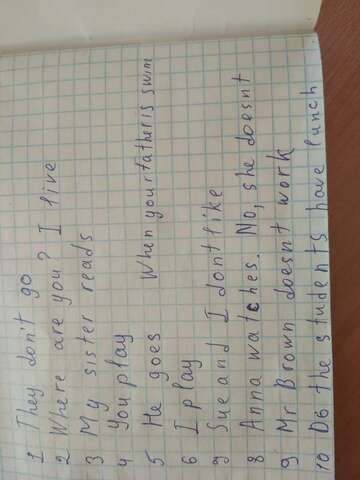 1 They don't go
2 Where are you? I live
3 My sister reads
4 You play
5 He goes When your father is swim
6 I play
7 Sue and I dont like
8 Anna watches. No, she doesnt
9 Mr Brown doesnt work
10 Do the students have lunch